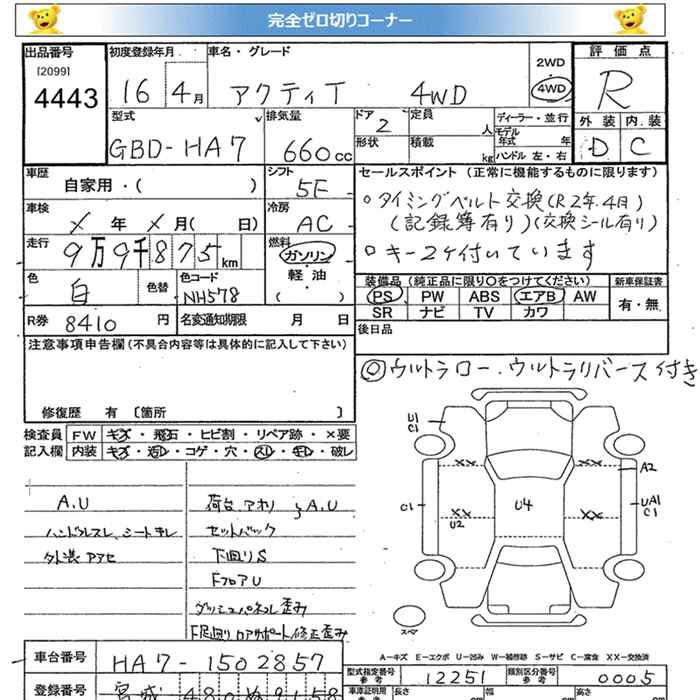 完全ゼロ切りコーナー
出品番号
[2099]
4443
初度登録年月
16 4月
車名・グレード
アクティT 4WD
2WD
4WD
評価点
R
型式
GBD-HA7
排気量
660cc
ドア
2
形状
定員
人
積載
kg
ディーラー・並行
モデル年式 年
ハンドル 左・右
外装 内装
D C
車歴
自家用・( )
シフト
5F
セールスポイント (正常に機能するものに限ります)
○タイミングベルト交換(R2年.4月)
(記録簿有り)(交換シール有り)
○キー2ケ付いています
車検
X 年 X 月( 日)
冷房
AC
走行
9万9千875km
燃料
ガソリン
軽油
( )
色
白
色替
色コード
NH578
装備品 (純正品に限り○をつけてください)
PS PW ABS エアB AW
SR ナビ TV カワ
新車保証書
有・無
R券 8410円
名変通知期限 月 日
後日品
注意事項申告欄(不具合内容等は具体的に記入して下さい)
◎ウルトラロー・ウルトラリバース付き
修復歴 有 〔箇所 〕
検査員記入欄
FW キズ・飛石・ヒビ割・リペア跡・×要
内装 キズ・汚レ・コゲ・穴・スレ・キレ・破レ
A.U
ハンドルスレ、シートキレ
外装アアセ
荷台アオリ}A.U
セットバック
下回りS
FフロアU
ダッシュパネル歪み
F足回りロアサポート修正歪み
U1
C1
XX
XX
A2
C1
XX
U2
U4
XX
UA1
C1
スペア
A-キズ E-エクボ U-凹み W-補修跡 S-サビ C-腐食 XX-交換済
車台番号
HA7-1502857
登録番号
宮城 480ぬ9158
型式指定番号
参考
12251
類別区分番号
参考
0005
車庫証明用
参考
長さ
cm
幅
cm
高さ
cm